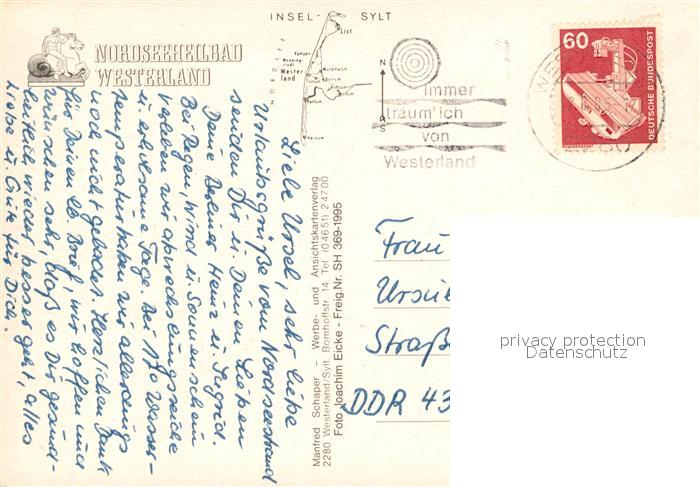 NORDSEEHEILBAD
WESTERLAND
INSEL - SYLT
List
Kampen
Wester
land
Keitum
N
S
Immer
träum' ich
von
Westerland
60
DEUTSCHE BUNDESPOST
Liebe Ursel, sehr liebe
Urlaubsgrüße vom Nordseestrand
senden Dir u. Deinen Lieben
Deine Berliner Heinz u. Sigrid.
Bei Regen, Wind u. Sonnenschein
verleben wir abwechslungsreiche
u. erholsame Tage. Bei 17° Wasser-
temperatur haben wir allerdings
noch nicht gebadet. Herzlichen Dank
für Deinen lb. Brief, wir hoffen und
wünschen sehr, daß es Dir gesund-
heitlich wieder besser geht, alles
Liebe u. Gute für Dich.
Manfred Schaper - Werbe- und Ansichtskartenverlag
2280 Westerland/Sylt, Bomhoffstr. 14, Tel. (04651) 24700
Foto Joachim Eicke - Freig.Nr. SH 369-1995
Frau
Ursu
Straß
DDR 43
privacy protection
Datenschutz